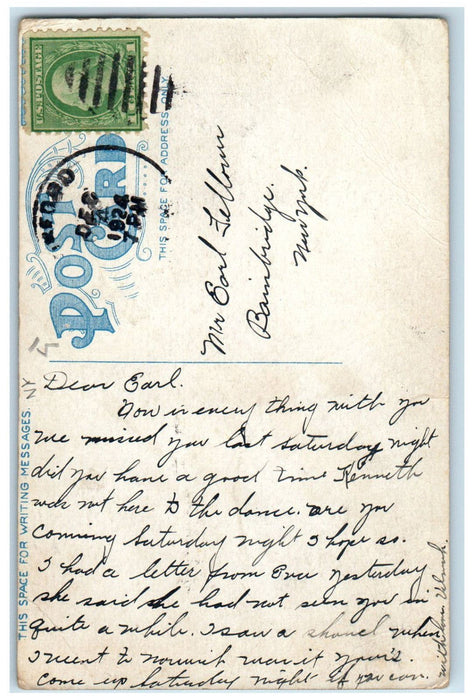 U.S. POSTAGE
AFTON
DEC
4
1924
1 PM
POST
CARD
THIS SPACE FOR ADDRESS ONLY
Mr Earl Fellows
Bainbridge.
New York.
THIS SPACE FOR WRITING MESSAGES.
NY
5
Dear Earl.
How is every thing with you
we missed you last Saturday night
did you have a good time Kenneth
was not here to the dance. are you
coming Saturday night I hope so.
I had a letter from Eva yesterday
she said she had not seen you in
quite a while. I saw a shovel when
I went to norwich was it yours.
come up Saturday night if you can.
with love